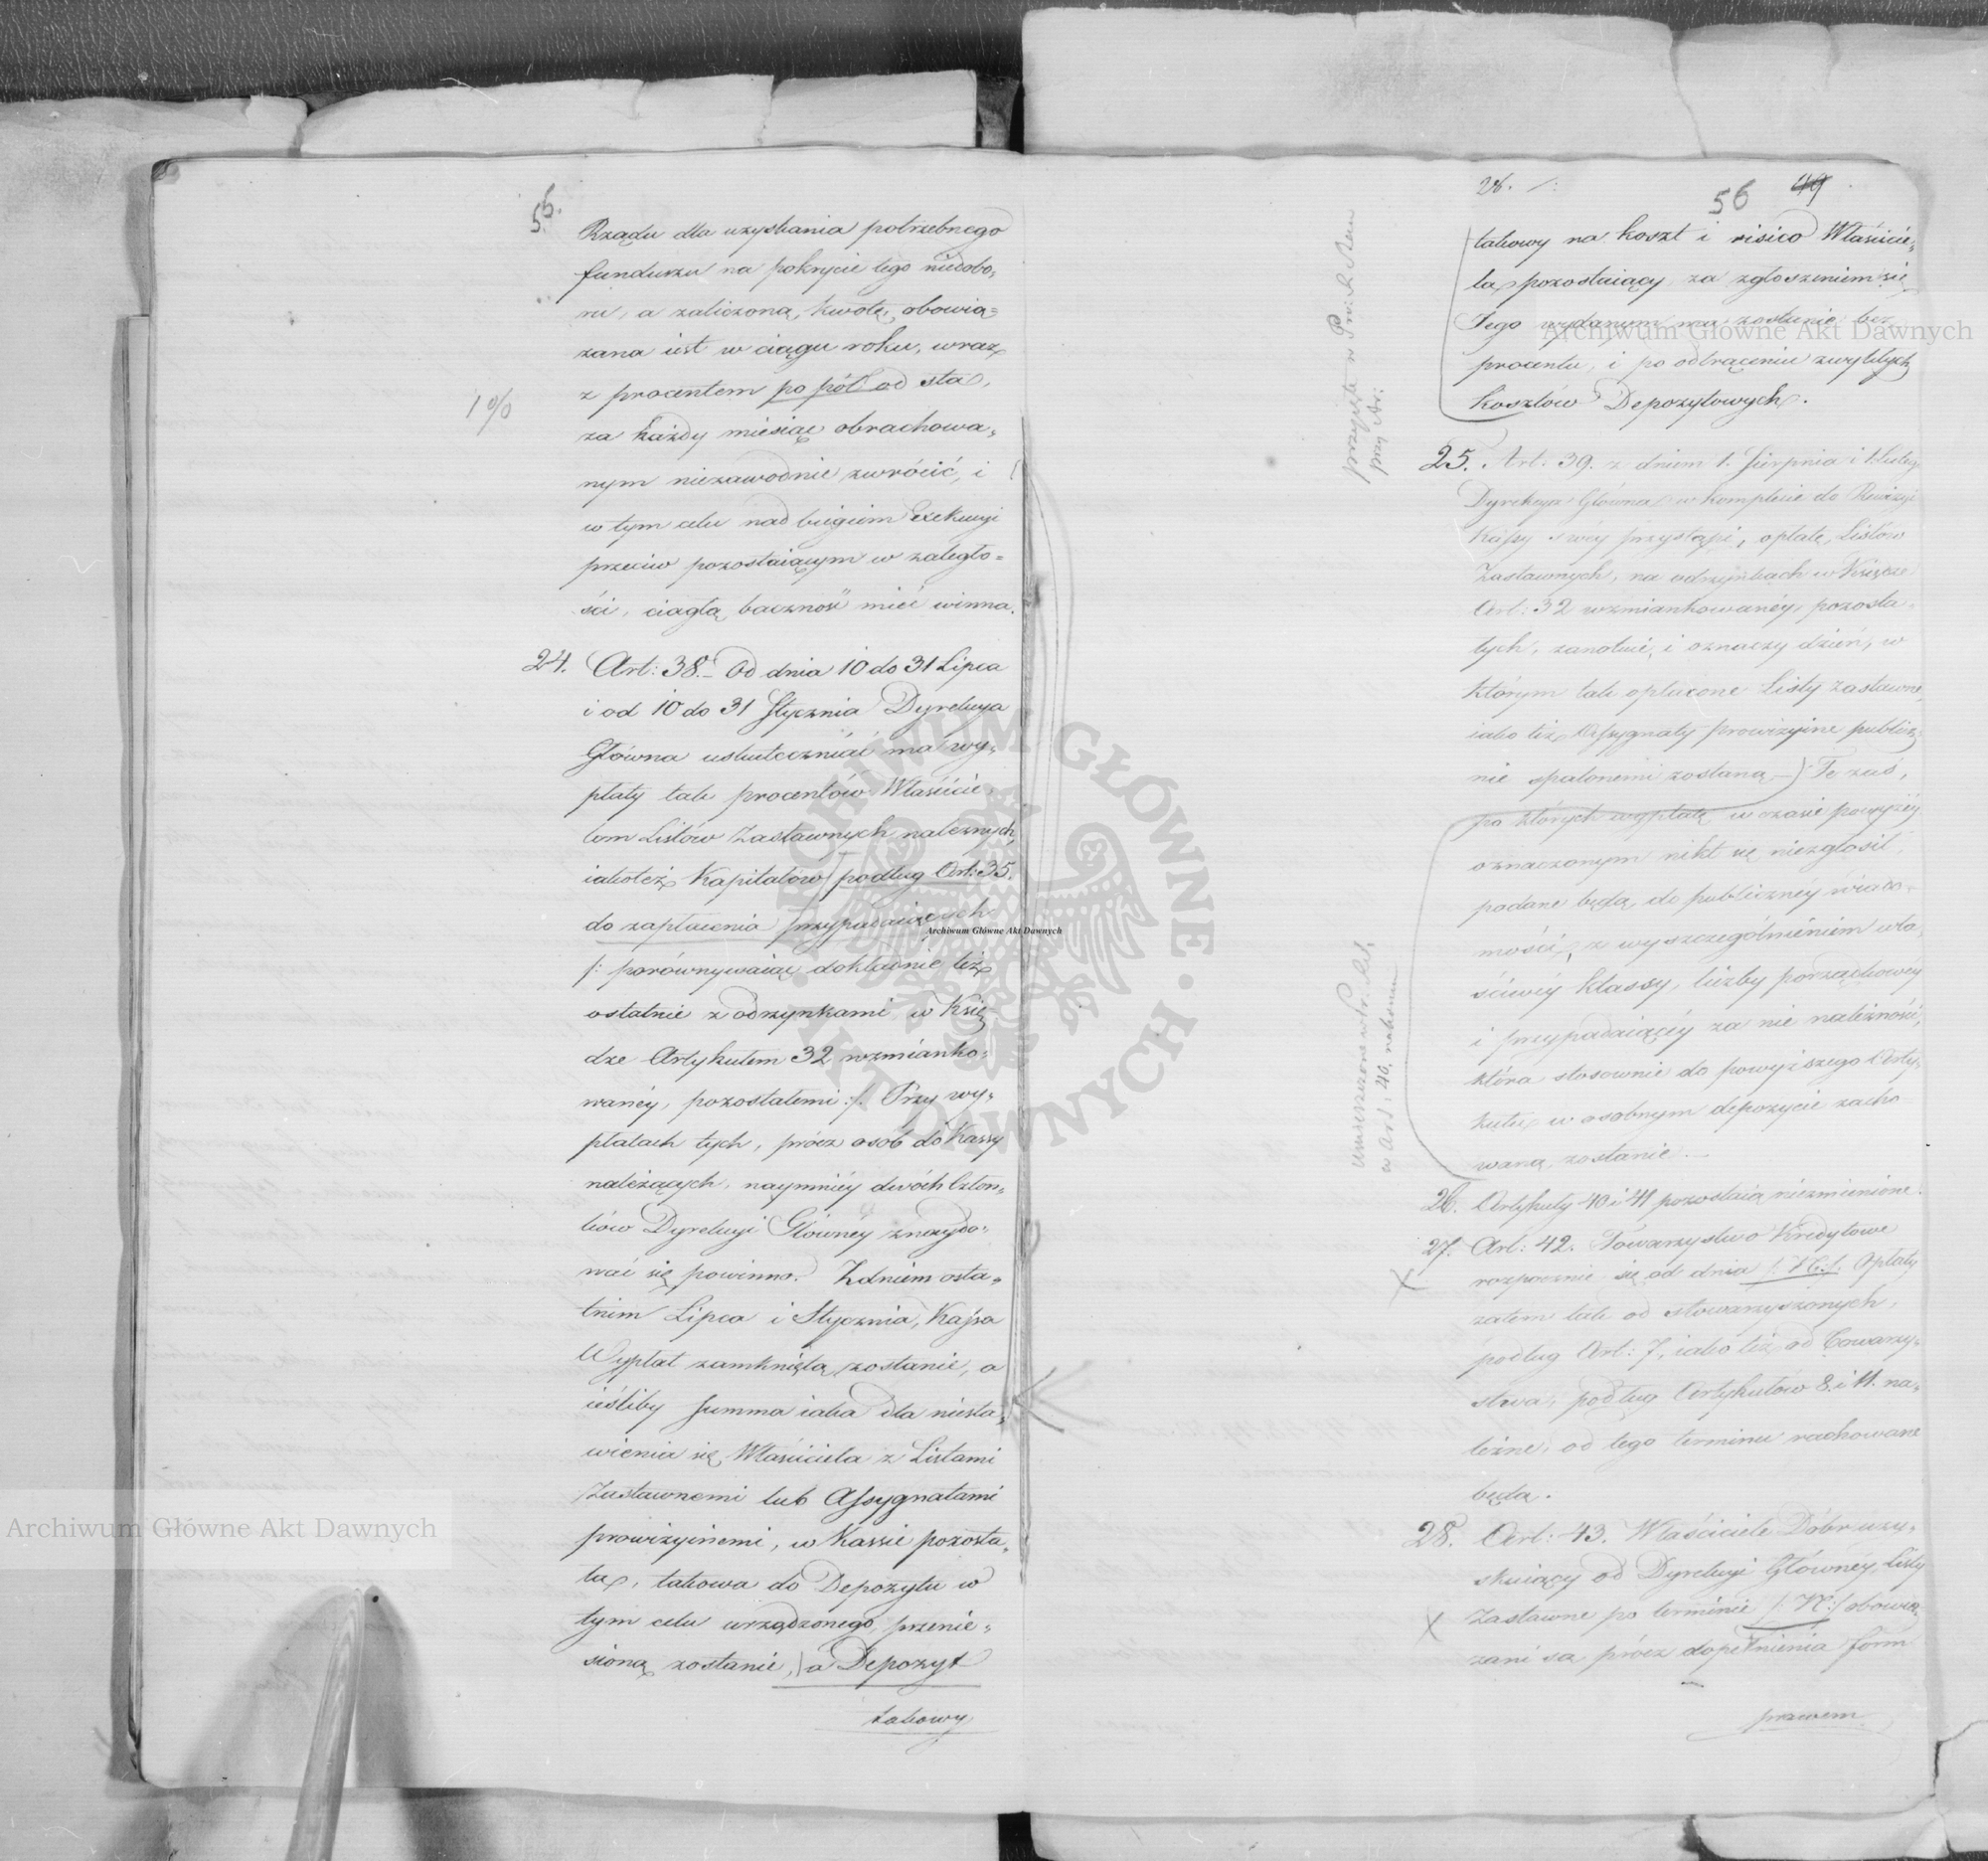 56.
Rządu dla uzyskania potrzebnego
funduszu na pokrycie tego niedobo„
ru, a zaliczoną kwotę, obowią„
zana iest w ciągu roku, wraz
z procentem po pół od sta,
1 %
za każdy miesiąc obrachowa„
nym niezawodnie zwrócić, i
w tym celu nad biegiem Exekucyi
przeciw pozostaiącym w zaległo„
ści, ciągłą baczność mieć winna.
24. Art: 38. – Od dnia 10 do 31 Lipca
i od 10 do 31 Stycznia Dyrekcya
Główna uskuteczniać ma wy„
płaty tak procentów Właścicie„
lom Listów Zastawnych należnych,
iakoteż Kapitałów podług Art: 35.
do zapłacenia przypadaiących
/: porównywaiąc dokładnie też
ostatnie z odrzynkami w Xię„
dze Artykułem 32 wzmianko„
wanéy, pozostałemi :/. Przy wy„
płatach tych, prócz osób do Kassy
należących, naymniéy dwóch Człon„
ków Dyrekcyi Głównéy znaydo„
wać się powinno. Z dniem osta„
tnim Lipca i Stycznia, Kassa
Wypłat zamkniętą zostanie, a
ieśliby summa iaka dla niesta„
wienia się Właściciela z Listami
Zastawnemi lub Assygnatami
prowizyinemi, w Kassie pozosta„
ła, takowa do Depozytu w
tym celu urządzonego, przenie„
sioną zostanie, a Depozyt
takowy
28. /:
56 49
takowy na koszt i risico Właścicie„
la pozostaiący, za zgłoszeniem się
Jego wydanym ma zostanie bez
procentu, i po odtrąceniu zwykłych
kosztów Depozytowych.
przyięte w Pr:
przy Ar:
25. Art: 39. z dniem 1. Sierpnia i 1. Lutego
Dyrekcya Główna w komplecie do Rewizyi
Kassy swéy przystąpi, opłatę, Listów
Zastawnych, na odrzynkach w Xiędze
Art: 32 wzmiankowanéy, pozosta„
łych, zanotuie, i oznaczy dzień, w
którym tak opłacone Listy zastawne,
iako też Assygnaty prowizyine publicz„
nie spalonemi zostaną –) Te zaś,
po których wypłatę w czasie powyżéy
oznaczonym nikt się niezgłosił,
podane będą do publicznéy wiado„
mości, z wyszczególnieniem wła„
ściwéy klassy, liczby porządkowéy
i przypadaiącéy za nie należności,
która stosownie do powyższego Arty„
kułu w osobnym depozycie zacho„
waną zostanie. –
umieszczone w Pr:
w Art: 40. na końcu
26. Artykuły 40 i 41 pozostaią niezmienione.
27. Art: 42. Towarzystwo Kredytowe
rozpocznie się od dnia /: N :/. Opłaty
X
zatem tak od stowarzyszonych,
podług Art: 7, iako też od Towarzy„
stwa, podług Artykułów 8. i 11. na„
leżne, od tego terminu rachowane
będą.
28. Art: 43. Właściciele Dóbr uzy„
skuiący od Dyrekcyi Głównéy, Listy
X
Zastawne po terminie /: N :/ obowią„
zani są prócz dopełnienia form
prawem
Archiwum Główne Akt Dawnych
Archiwum Główne Akt Dawnych
Archiwum Główne Akt Dawnych
ARCHIWUM GŁÓWNE · AKT DAWNYCH ·